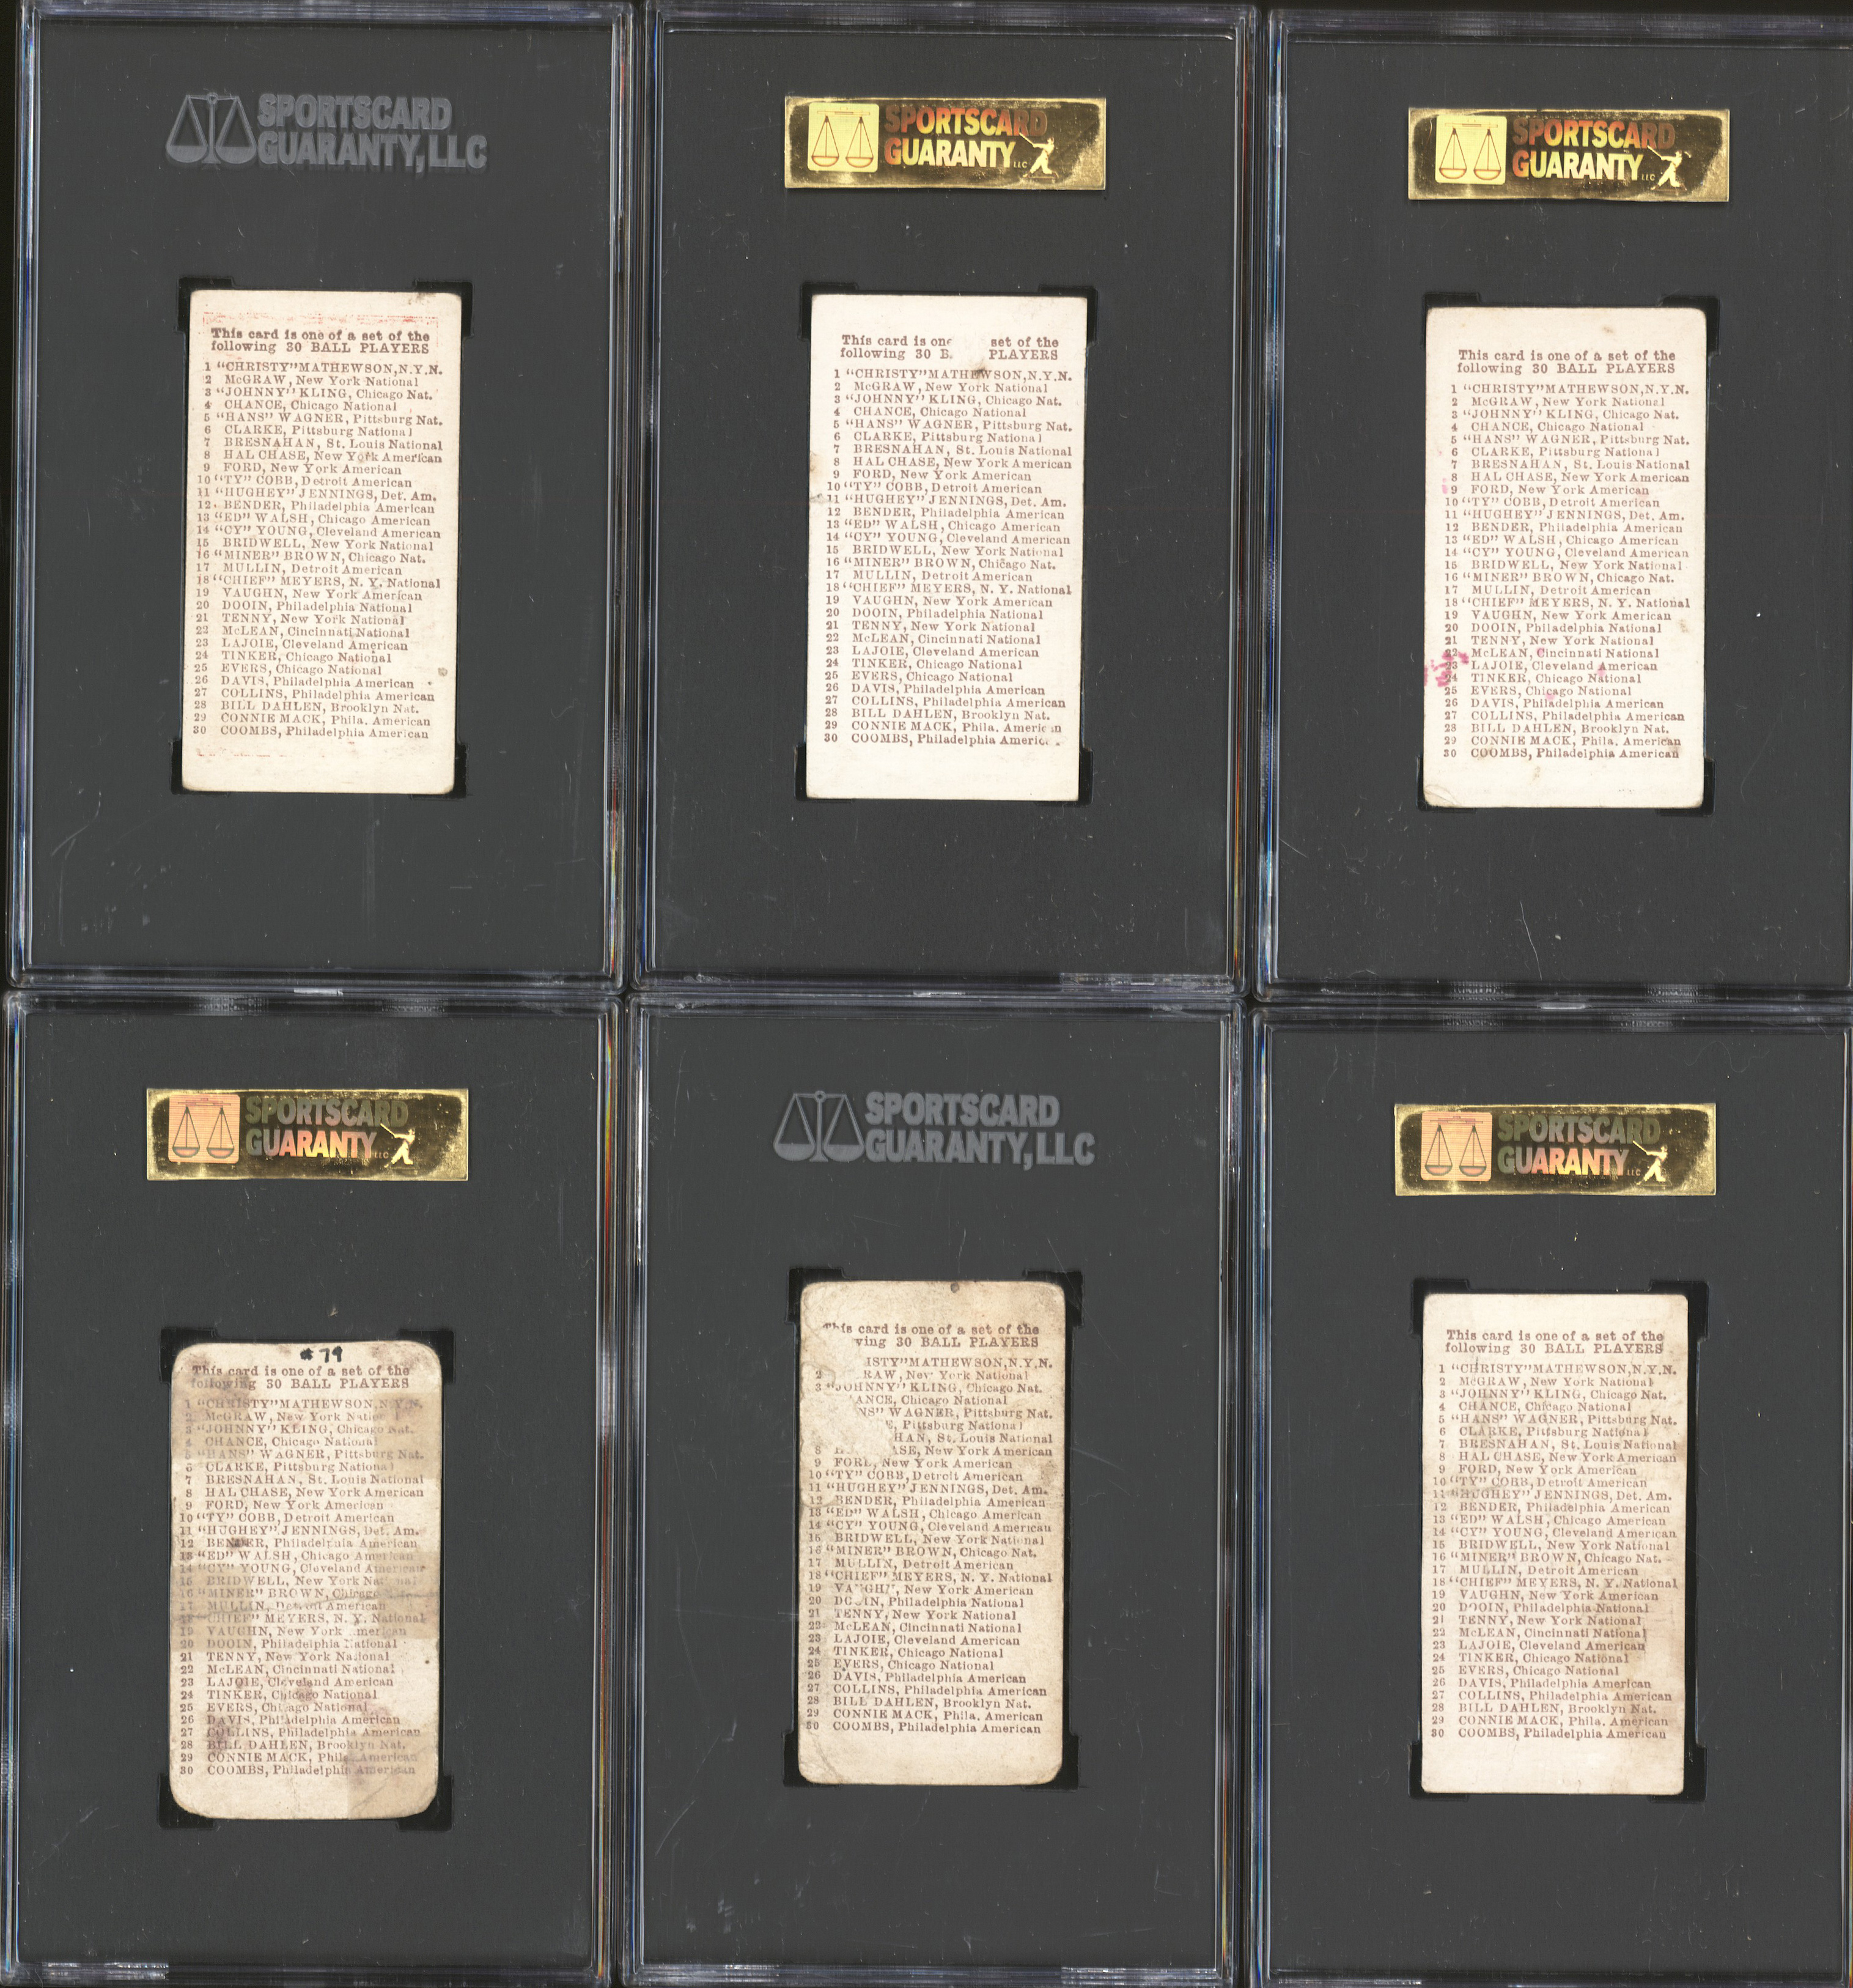 SPORTSCARD
GUARANTY, LLC
This card is one of a set of the
following 30 BALL PLAYERS
1 "CHRISTY" MATHEWSON, N.Y.N.
2 McGRAW, New York National
3 "JOHNNY" KLING, Chicago Nat.
4 CHANCE, Chicago National
5 "HANS" WAGNER, Pittsburg Nat.
6 CLARKE, Pittsburg National
7 BRESNAHAN, St. Louis National
8 HAL CHASE, New York American
9 FORD, New York American
10 "TY" COBB, Detroit American
11 "HUGHEY" JENNINGS, Det. Am.
12 BENDER, Philadelphia American
13 "ED" WALSH, Chicago American
14 "CY" YOUNG, Cleveland American
15 BRIDWELL, New York National
16 "MINER" BROWN, Chicago Nat.
17 MULLIN, Detroit American
18 "CHIEF" MEYERS, N. Y. National
19 VAUGHN, New York American
20 DOOIN, Philadelphia National
21 TENNY, New York National
22 McLEAN, Cincinnati National
23 LAJOIE, Cleveland American
24 TINKER, Chicago National
25 EVERS, Chicago National
26 DAVIS, Philadelphia American
27 COLLINS, Philadelphia American
28 BILL DAHLEN, Brooklyn Nat.
29 CONNIE MACK, Phila. American
30 COOMBS, Philadelphia American
SPORTSCARD
GUARANTY LLC
This card is one set of the
following 30 B PLAYERS
1 "CHRISTY" MATHEWSON, N.Y.N.
2 McGRAW, New York National
3 "JOHNNY" KLING, Chicago Nat.
4 CHANCE, Chicago National
5 "HANS" WAGNER, Pittsburg Nat.
6 CLARKE, Pittsburg National
7 BRESNAHAN, St. Louis National
8 HAL CHASE, New York American
9 FORD, New York American
10 "TY" COBB, Detroit American
11 "HUGHEY" JENNINGS, Det. Am.
12 BENDER, Philadelphia American
13 "ED" WALSH, Chicago American
14 "CY" YOUNG, Cleveland American
15 BRIDWELL, New York National
16 "MINER" BROWN, Chicago Nat.
17 MULLIN, Detroit American
18 "CHIEF" MEYERS, N. Y. National
19 VAUGHN, New York American
20 DOOIN, Philadelphia National
21 TENNY, New York National
22 McLEAN, Cincinnati National
23 LAJOIE, Cleveland American
24 TINKER, Chicago National
25 EVERS, Chicago National
26 DAVIS, Philadelphia American
27 COLLINS, Philadelphia American
28 BILL DAHLEN, Brooklyn Nat.
29 CONNIE MACK, Phila. American
30 COOMBS, Philadelphia Americ
SPORTSCARD
GUARANTY LLC
This card is one of a set of the
following 30 BALL PLAYERS
1 "CHRISTY" MATHEWSON, N.Y.N.
2 McGRAW, New York National
3 "JOHNNY" KLING, Chicago Nat.
4 CHANCE, Chicago National
5 "HANS" WAGNER, Pittsburg Nat.
6 CLARKE, Pittsburg National
7 BRESNAHAN, St. Louis National
8 HAL CHASE, New York American
9 FORD, New York American
10 "TY" COBB, Detroit American
11 "HUGHEY" JENNINGS, Det. Am.
12 BENDER, Philadelphia American
13 "ED" WALSH, Chicago American
14 "CY" YOUNG, Cleveland American
15 BRIDWELL, New York National
16 "MINER" BROWN, Chicago Nat.
17 MULLIN, Detroit American
18 "CHIEF" MEYERS, N. Y. National
19 VAUGHN, New York American
20 DOOIN, Philadelphia National
21 TENNY, New York National
22 McLEAN, Cincinnati National
23 LAJOIE, Cleveland American
24 TINKER, Chicago National
25 EVERS, Chicago National
26 DAVIS, Philadelphia American
27 COLLINS, Philadelphia American
28 BILL DAHLEN, Brooklyn Nat.
29 CONNIE MACK, Phila. American
30 COOMBS, Philadelphia American
SPORTSCARD
GUARANTY LLC
#79
This card is one of a set of the
following 30 BALL PLAYERS
1 "CHRISTY" MATHEWSON, N.Y.N.
2 McGRAW, New York Natio
3 "JOHNNY" KLING, Chicago Nat.
4 CHANCE, Chicago National
5 "HANS" WAGNER, Pittsburg Nat.
6 CLARKE, Pittsburg National
7 BRESNAHAN, St. Louis National
8 HAL CHASE, New York American
9 FORD, New York American
10 "TY" COBB, Detroit American
11 "HUGHEY" JENNINGS, Det. Am.
12 BENDER, Philadelphia American
13 "ED" WALSH, Chicago American
14 "CY" YOUNG, Cleveland American
15 BRIDWELL, New York National
16 "MINER" BROWN, Chicago
17 MULLIN, Detroit American
18 "CHIEF" MEYERS, N. Y. National
19 VAUGHN, New York American
20 DOOIN, Philadelphia National
21 TENNY, New York National
22 McLEAN, Cincinnati National
23 LAJOIE, Cleveland American
24 TINKER, Chicago National
25 EVERS, Chicago National
26 DAVIS, Philadelphia American
27 COLLINS, Philadelphia American
28 BILL DAHLEN, Brooklyn Nat.
29 CONNIE MACK, Phila. American
30 COOMBS, Philadelphia American
SPORTSCARD
GUARANTY, LLC
This card is one of a set of the
ving 30 BALL PLAYERS
ISTY" MATHEWSON, N.Y.N.
2 RAW, New York National
3 "JOHNNY" KLING, Chicago Nat.
ANCE, Chicago National
NS" WAGNER, Pittsburg Nat.
E, Pittsburg National
HAN, St. Louis National
8 H ASE, New York American
9 FORD, New York American
10 "TY" COBB, Detroit American
11 "HUGHEY" JENNINGS, Det. Am.
12 BENDER, Philadelphia American
13 "ED" WALSH, Chicago American
14 "CY" YOUNG, Cleveland American
15 BRIDWELL, New York National
16 "MINER" BROWN, Chicago Nat.
17 MULLIN, Detroit American
18 "CHIEF" MEYERS, N. Y. National
19 VAUGHN, New York American
20 DOOIN, Philadelphia National
21 TENNY, New York National
22 McLEAN, Cincinnati National
23 LAJOIE, Cleveland American
24 TINKER, Chicago National
25 EVERS, Chicago National
26 DAVIS, Philadelphia American
27 COLLINS, Philadelphia American
28 BILL DAHLEN, Brooklyn Nat.
29 CONNIE MACK, Phila. American
30 COOMBS, Philadelphia American
SPORTSCARD
GUARANTY LLC
This card is one of a set of the
following 30 BALL PLAYERS
1 "CHRISTY" MATHEWSON, N.Y.N.
2 McGRAW, New York National
3 "JOHNNY" KLING, Chicago Nat.
4 CHANCE, Chicago National
5 "HANS" WAGNER, Pittsburg Nat.
6 CLARKE, Pittsburg National
7 BRESNAHAN, St. Louis National
8 HAL CHASE, New York American
9 FORD, New York American
10 "TY" COBB, Detroit American
11 "HUGHEY" JENNINGS, Det. Am.
12 BENDER, Philadelphia American
13 "ED" WALSH, Chicago American
14 "CY" YOUNG, Cleveland American
15 BRIDWELL, New York National
16 "MINER" BROWN, Chicago Nat.
17 MULLIN, Detroit American
18 "CHIEF" MEYERS, N. Y. National
19 VAUGHN, New York American
20 DOOIN, Philadelphia National
21 TENNY, New York National
22 McLEAN, Cincinnati National
23 LAJOIE, Cleveland American
24 TINKER, Chicago National
25 EVERS, Chicago National
26 DAVIS, Philadelphia American
27 COLLINS, Philadelphia American
28 BILL DAHLEN, Brooklyn Nat.
29 CONNIE MACK, Phila. American
30 COOMBS, Philadelphia American